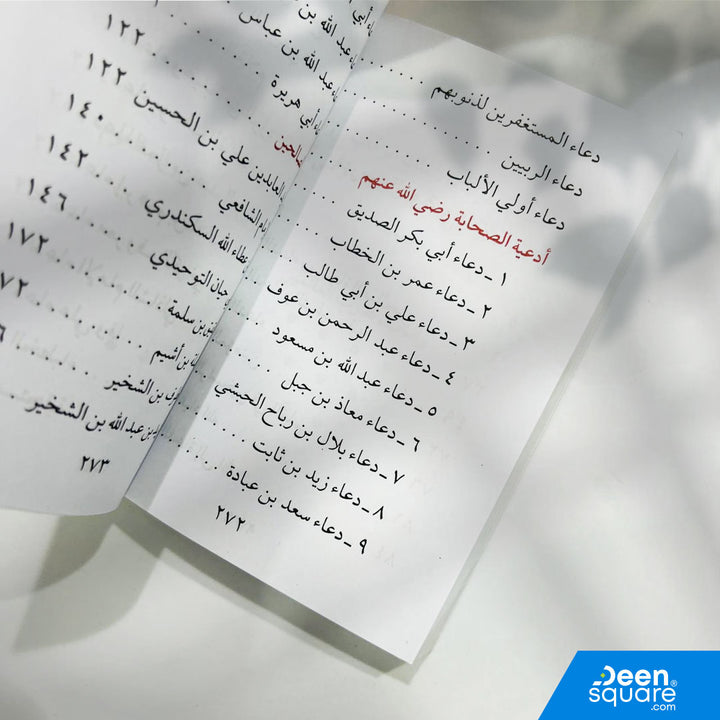 دعاء المستغفرين لذنوبهم
دعاء الربيين
دعاء أولي الألباب
أدعية الصحابة رضي الله عنهم
١ ـ دعاء أبي بكر الصديق
٢ ـ دعاء عمر بن الخطاب
٣ ـ دعاء علي بن أبي طالب
٤ ـ دعاء عبد الرحمن بن عوف
٥ ـ دعاء عبد الله بن مسعود
٦ ـ دعاء معاذ بن جبل
٧ ـ دعاء بلال بن رباح الحبشي
٨ ـ دعاء زيد بن ثابت
٩ ـ دعاء سعد بن عبادة
٢٧٢
أبي
عبد الله بن
عبد الله بن عباس
أبي هريرة ١٢٢
علي بن الحسين ١٢٢
الشافعي ١٤٠
عطاء الله السكندري ١٤٢
التوحيدي ١٤٦
بن سلمة ١٧٢
بن أشيم
بن الشخير
بن عبد الله بن الشخير
٢٧٣
Deen
square®
.com